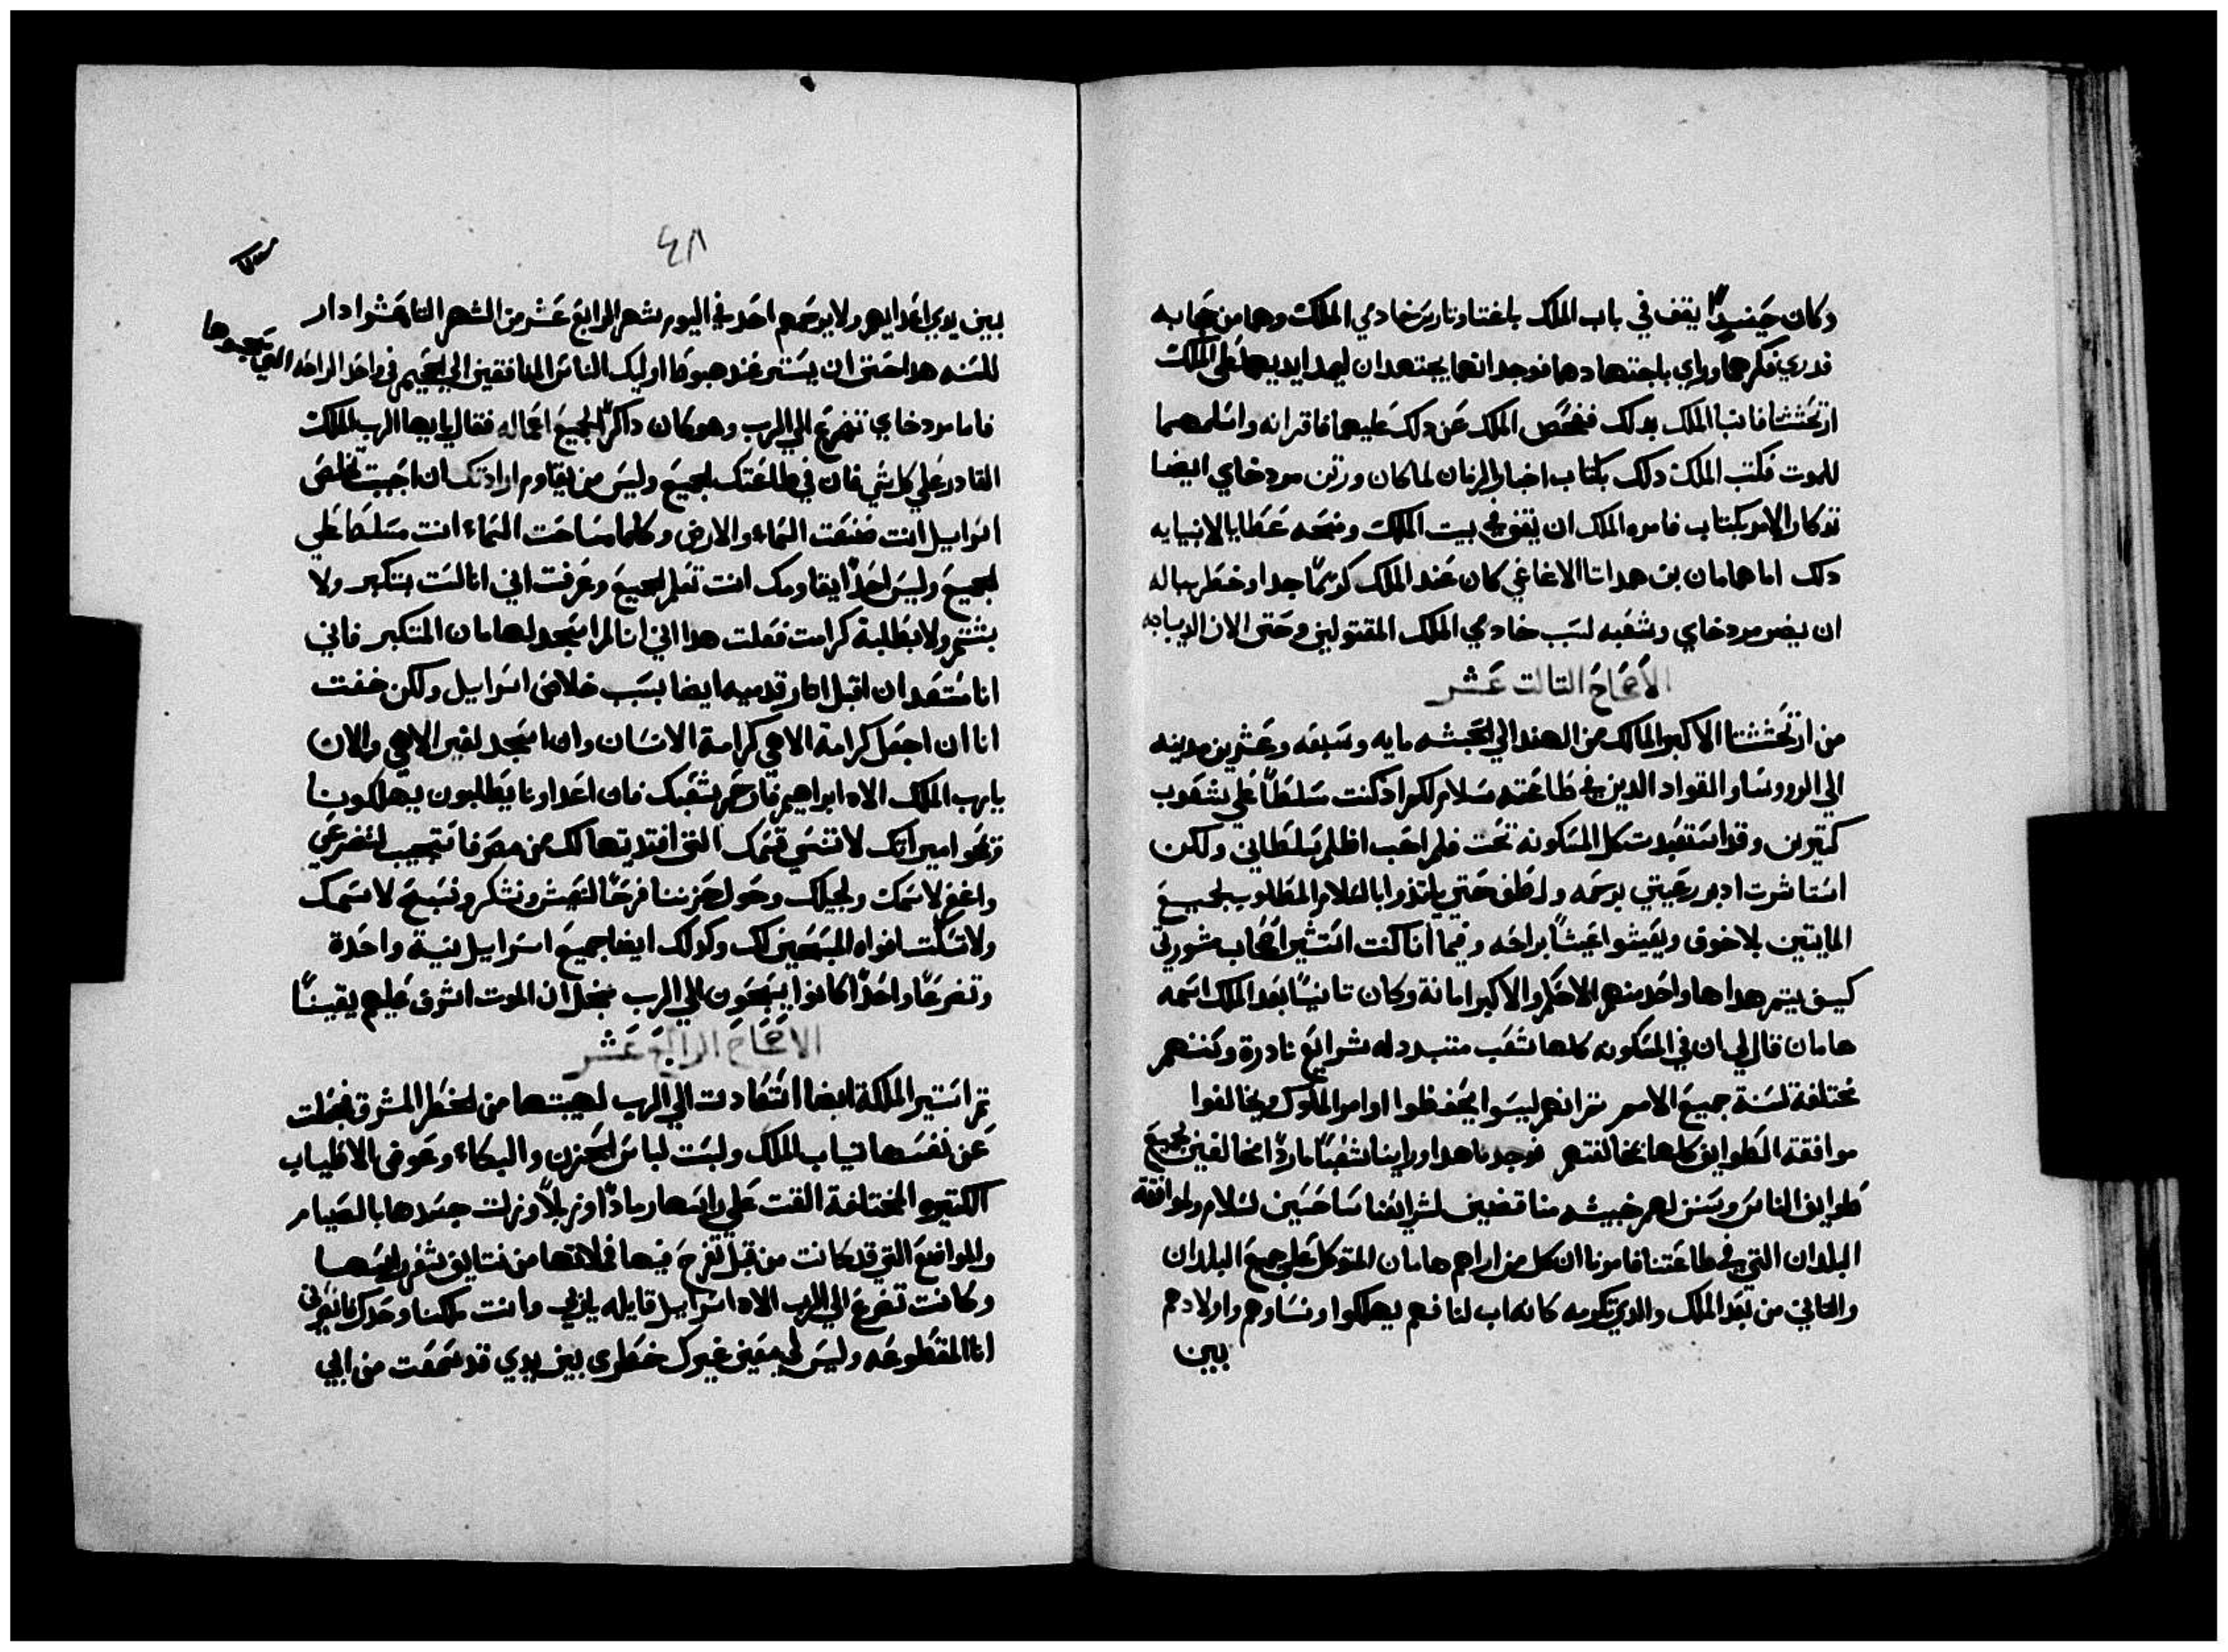 وكان حينيدٍ يقف في باب الملك باغتا وتاريس خادمي الملك وهما من حجابه
قدري فكرهما وراي باجتهادهما فوجد انهما يجتهدان ليمدا ايديهما على الملك
ارتحششتا فانبا الملك بدلك ففحص الملك عن دلك عليهما فاقرانه واسلمهما
للموت فكتب الملك دلك بكتاب اخبار الزمان لما كان ورتن مودخاي ايضا
تدكار الامر بكتاب فامره الملك ان يقف في بيت الملك ومنحه عطايا لانبايه
دلك اما هامان بن همداتا الاغاغي كان عند الملك كريمًا جدا وخطر بباله
ان يضر مردخاي وشعبه لسبب خادمي الملك المقتولين وحتى الان الديباجه
الاصحاح التالت عشر
من ارتحششتا الاكبر المالك من الهند الي الحبشه مايه وسبعه وعشرين مدينه
الي الروسا والقواد الدين في طاعته سلام لكم اد كنت سلطًا علي شعوب
كتيرين وقد استعبدت كل المسكونه تحت فلم احب اظلم بسلطاني ولكن
استاثرت ادبر رعيتي برحمه ولطف حتى يلتدوا بالسلام المطلوب لجميع
المايتين بلا خوف ويعيشوا عيشًا براحه وفيما انا كنت استشير اصحاب مشورتي
كيف يتم هدا ها واحد منهم الاحكم والاكبر امانة وكان تانيًا بعد الملك اسمه
هامان قال لي ان في المسكونه كلها شعب متبدد له شرايع نادرة وسننهم
مختلفة لسنة جميع الامم ثم انهم ليسوا يحفظوا اوامر الملوك ويخالفوا
موافقة الطوايف كلها بمخالفتهم فوجدنا هدا وراينا شعبًا ماردًا مخالفين لجميع
طوايف الناس وسنن لهم خبيثه مناقضين لشرايعنا شاحسين لسلام ولموافقة
البلدان التي في طاعتنا فامرنا ان كل من اراهم هامان المتوكل علي جميع البلدان
والتاني من بعد الملك والدي نكرمه كانه اب لنا فهم يهلكوا ونساوهم واولادهم
بين
٤٨
بين يدي اعدايهم ولا يرحمهم احد في اليوم بشهر الرابع عشر من الشهر التاني عشر ادار
للسنه هدا حتى ان يستر عند هبوطا اوليك الناس المنافقين الي الجحيم في واحد الراحه التي
فاما مودخاي تنضرع الي الرب وهو كان داكرًا لجميع اعماله فقال يا ايها الرب الملك
القادر علي كل شي فان في طاعتك لجميع وليس من يقاوم ارادتك ان احببت تخلص
اسراييل انت صنعت السماء والارض وكلما ساحت السماء انت مسلطا علي
لجميع وليس احدًا يقاومك انت تعلم لجميع وعرفت اني انا لست بتكبر ولا
بشتم ولا بطلبة كرامت فعلت هدا اني انا لم اسجد لهامان المتكبر فاني
انا مستعد ان اقبل اثار قدميه ايضا بسبب خلاص اسراييل ولكن خفت
انا ان اجعل كرامة الاهي كرامة الانسان وان اسجد لغير الاهي والان
يا رب الملك الاه ابراهيم فارحم شعبك فان اعداونا يطلبون يهلكونا
ويمحوا ميراتك لا تنسي قسمك التي افتديتها لك من مصر فاستجيب لتضرعي
واغفر لاسمك ولحبلك وحول حزننا فرحًا لنعيش ونشكر ونسبح لاسمك
ولا تسكت افواه المسبحين لك وكدلك ايضا جميع اسراييل بنية واحدة
وتضرعًا واحدًا كانوا يسبحون الي الرب من اجل ان الموت اشرف عليهم يقينًا
الاصحاح الرابع عشر
ثم استير الملكة ايضا التعادت الي الرب لهيبتها من الخطر المشرف فجعلت
عن نفسها تياب الملك ولبست لباس الحزن والبكاء وعوض الاطياب
الكتيره المختلفة القت علي راسها رمادًا وزبلًا ونزلت جسدها بالصيام
والمواضع التي قد كانت من قبل تفرح فيها فملاتها من نتايف شعر راسها
وكانت تضرع الي الرب الاه اسراييل قايله يا ربي وانت ملكنا وحدك فانصرني
انا المقطوعه وليس لي معين غيرك خطري بين يدي قد سمعت من ابي